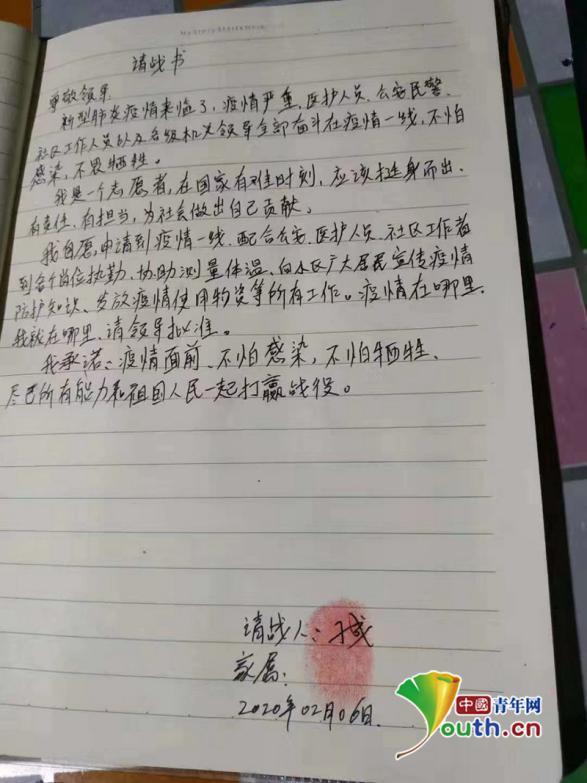 请战书
尊敬领导
新型肺炎疫情来临了，疫情严重，医护人员、公安民警、
社区工作人员以及各级机关领导全部奋斗在疫情一线，不怕
感染，不畏牺牲。
我是一个志愿者，在国家有难时刻，应该挺身而出、
有责任、有担当，为社会做出自己贡献。
我自愿申请到疫情一线、配合公安、医护人员、社区工作者
到各个岗位执勤、协助测量体温、向水区广大居民宣传疫情
防护知识、发放疫情使用物资等所有工作。疫情在哪里、
我就在哪里、请领导批准。
我承诺：疫情面前、不怕感染，不怕牺牲、
尽己所有能力和祖国人民一起打赢战役。
请战人：
家属：
2020年02月06日.
中國青年网
Youth.cn